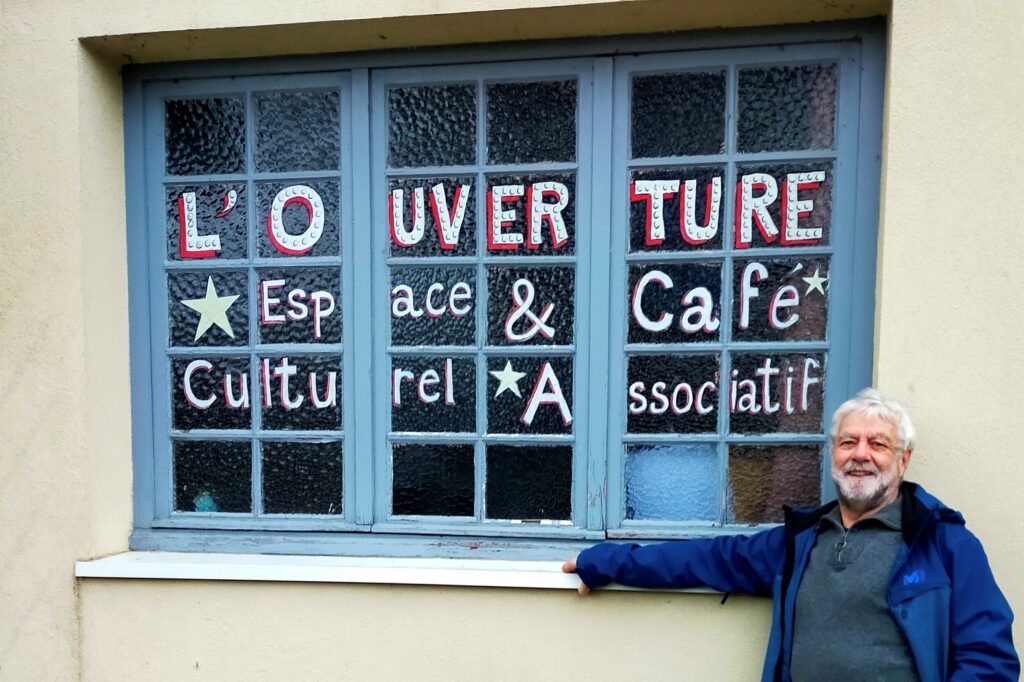 L'OUVERTURE
Espace & Café
Culturel A ssociatif
M